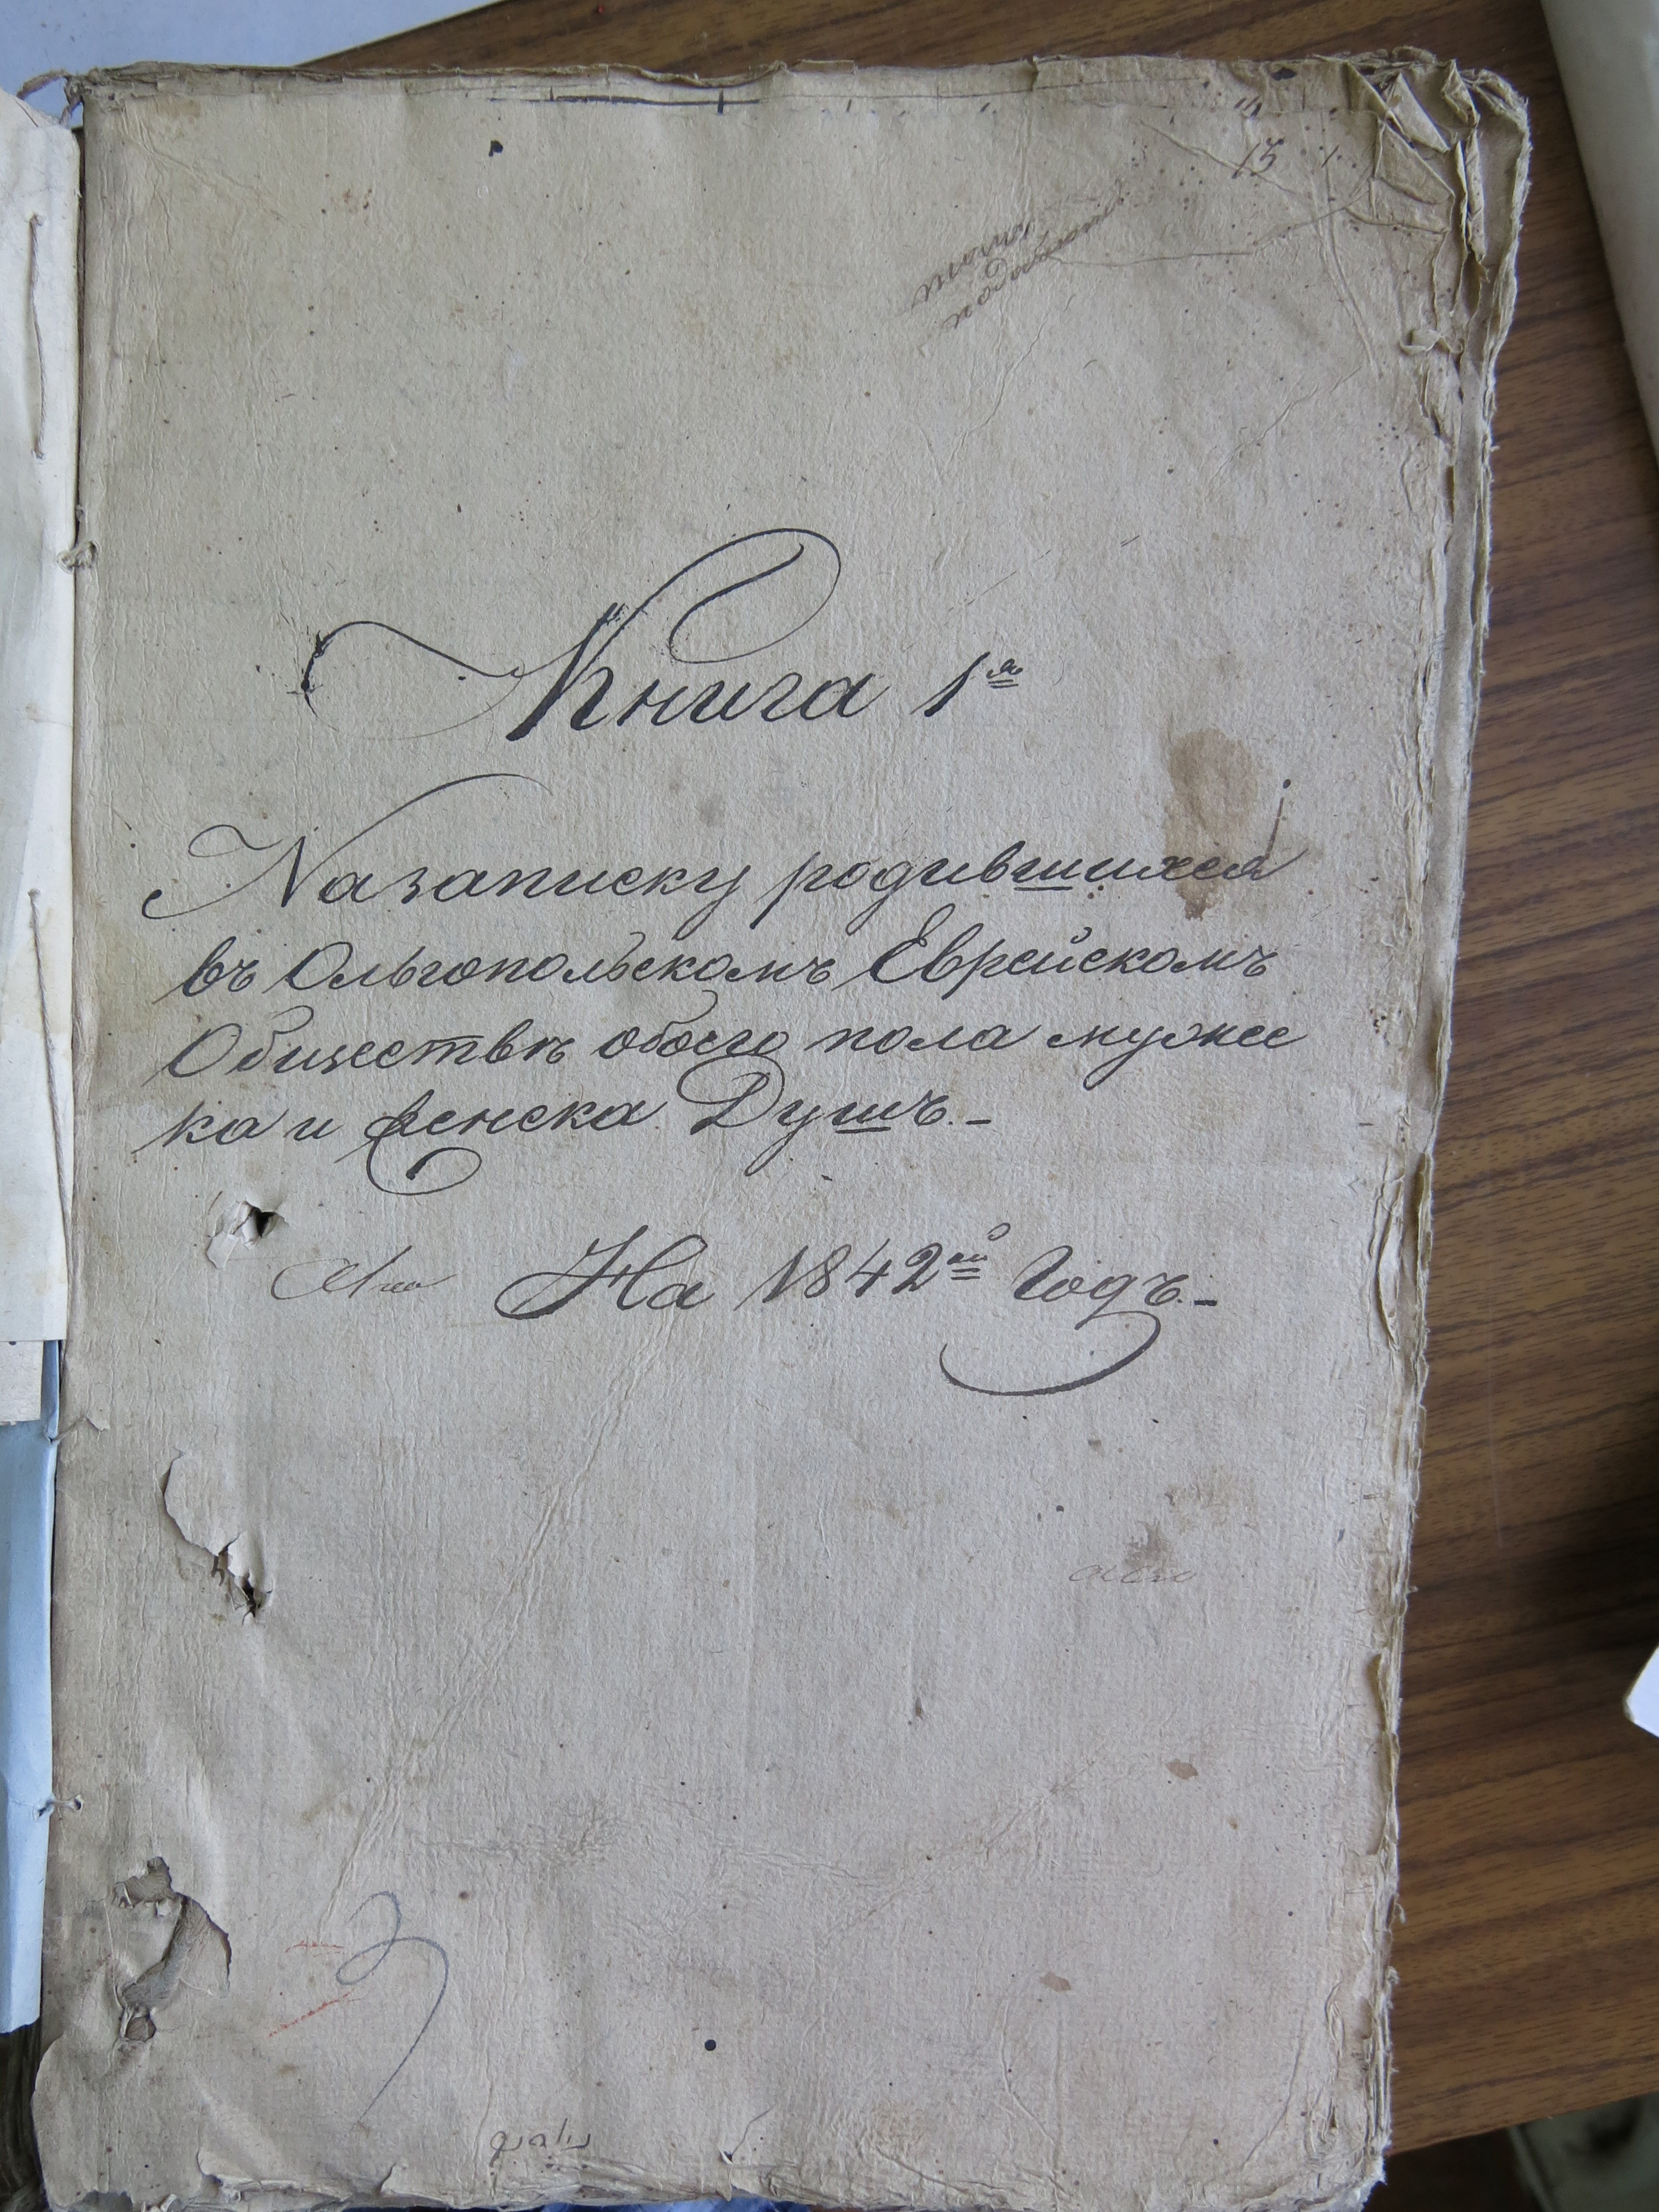 15
Книга 1я
На записку родившихся
въ Ольгопольскомъ Еврейскомъ
Обществѣ обоего пола мужес
ка и женска Душъ.-
На 1842ой Годъ.-